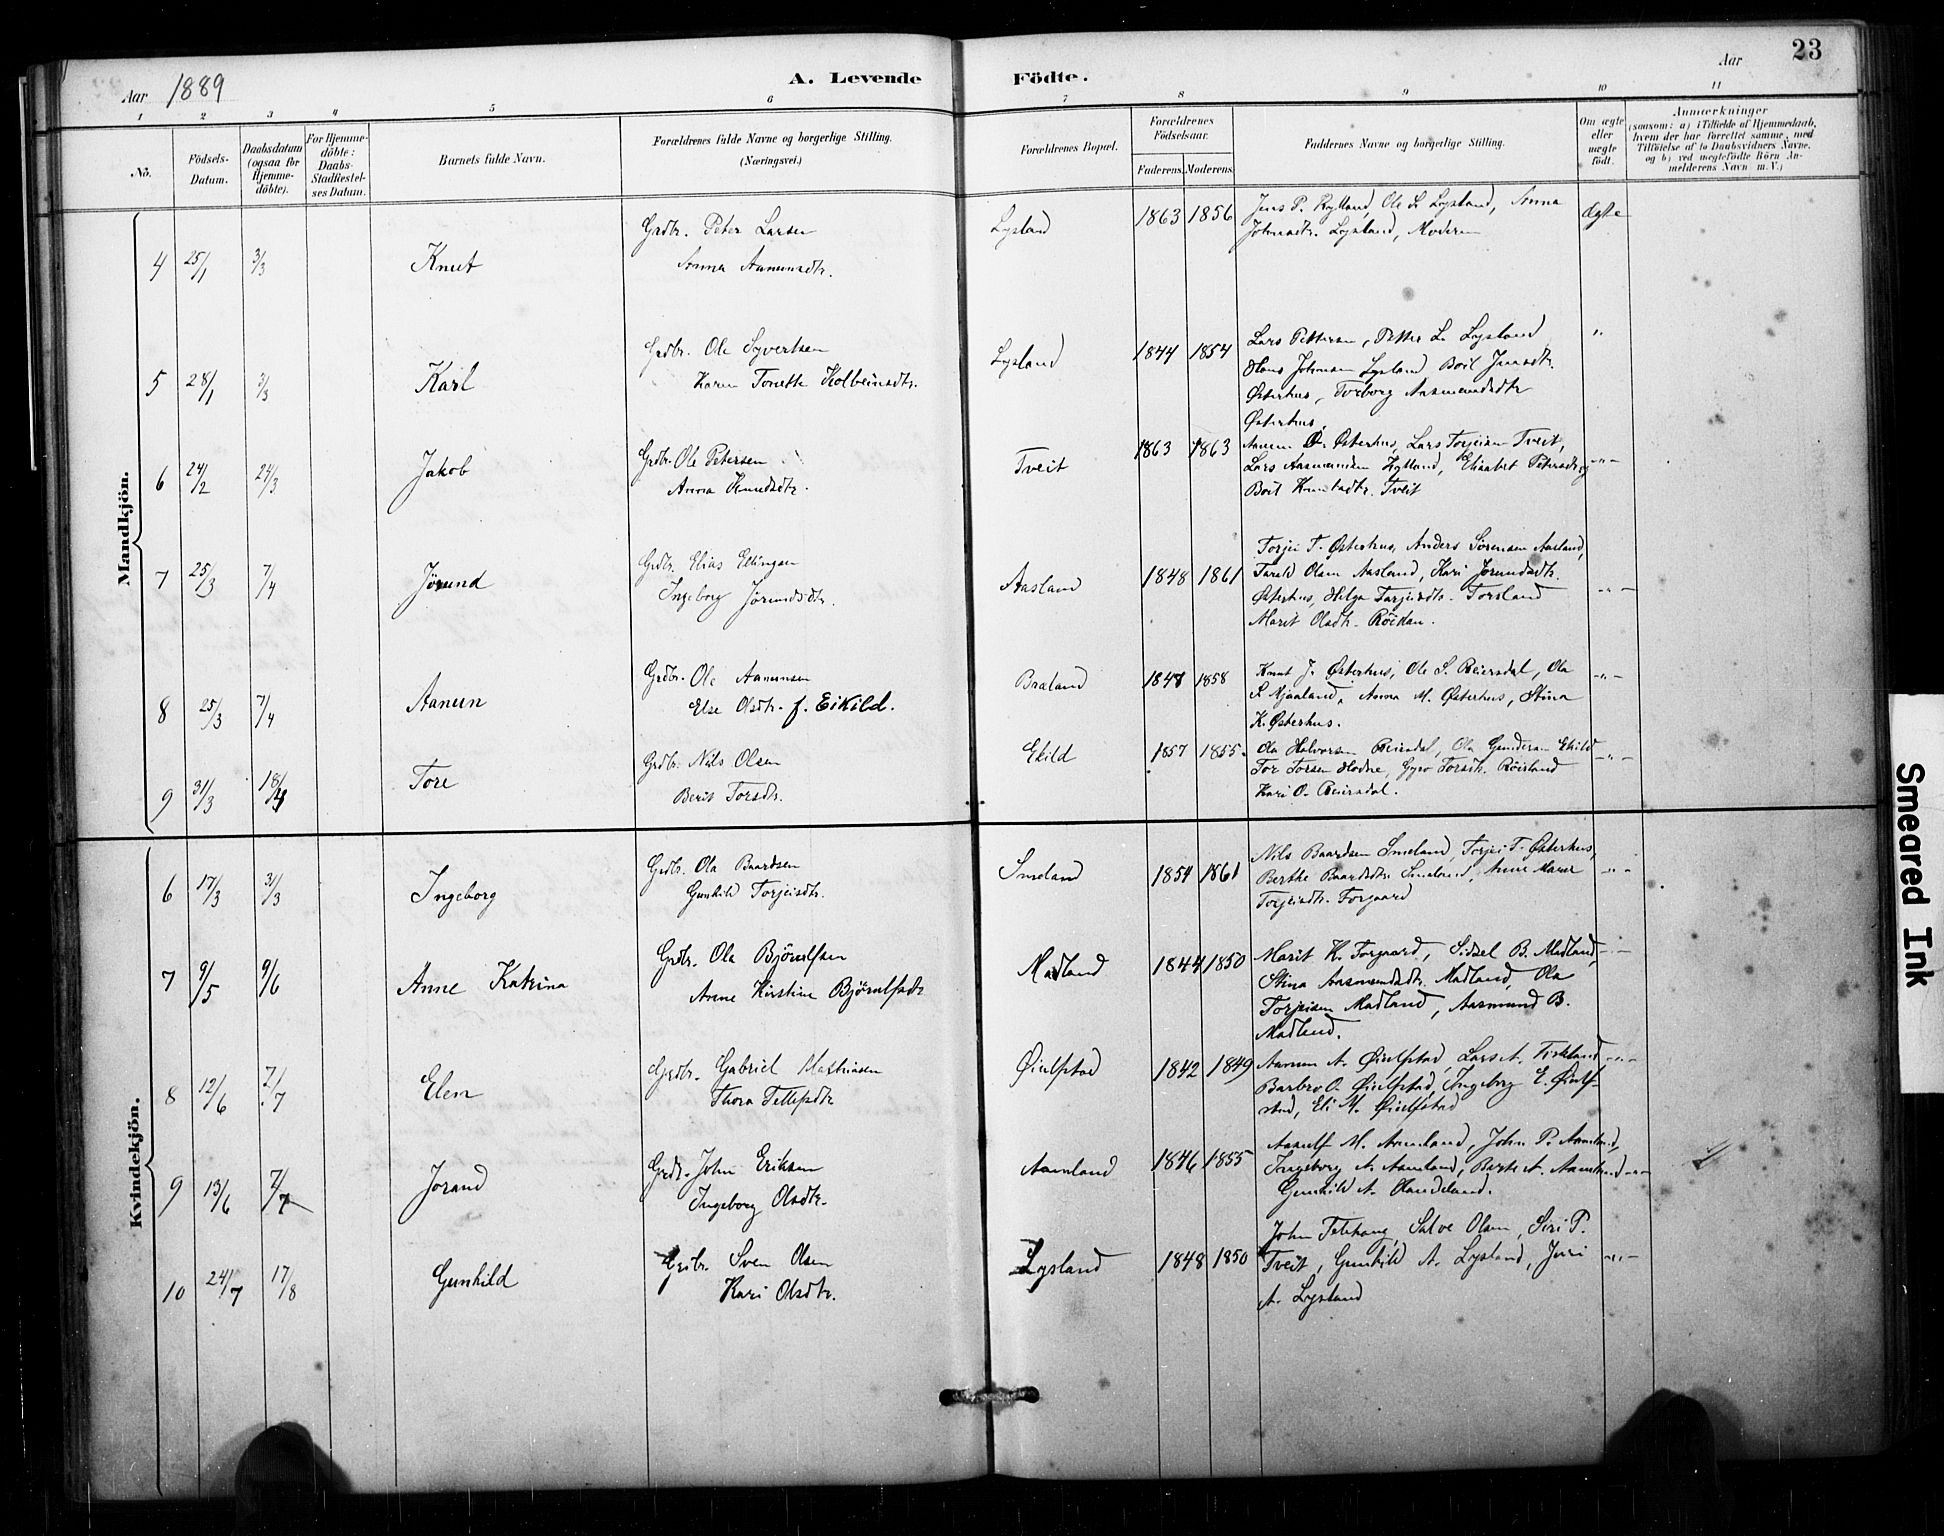 23
Aar 1889
A. Levende Födte.
Aar
1 2 3 4 5 6 7 8 9 10 11
No.
Födsels-Datum.
Daabsdatum (ogsaa for Hjemme-döbte).
For Hjemme-döbte: Daabs-Stadfæstel-ses Datum.
Barnets fulde Navn.
Forældrenes fulde Navne og borgerlige Stilling. (Næringsvei.)
Forældrenes Bopæl.
Forældrenes Födselsaar.
Faderens. Moderens.
Faddernes Navne og borgerlige Stilling.
Om ægte eller uægte födt.
Anmærkninger
(saasom: a) i Tilfælde af Hjemmedaab, hvem der har forrettet samme, med Tilföielse af to Daabsvidners Navne, og b) ved uægtefödte Börn Anmelderens Navn m. V.)
Mandkjön.
4 25/1 3/3 Knut
Grdbr. Peter Larsen
Anna Aanunsdtr.
Lysland 1863 1856
Jens P. Kylland, Ole L. Lysland, Anna
Johnsdtr. Lysland, Moderen
Ægte
5 28/1 3/3 Karl
Grdbr. Ole Syvertsen
Karen Tonette Kolbeinsdtr.
Lysland 1844 1854
Lars Pettersen, Petter L. Lysland
Hans Johnsen Lysland Boil Jensdtr.
Østerhus, Torborg Aasmundsdtr
Østerhus.
"
6 24/2 24/3 Jakob
Grdbr. Ole Petersen
Anna Knudsdtr.
Tveit 1863 1863
Aanen O. Østerhus, Lars Torjeisen Tveit,
Lars Aasmundsen Kylland, Elisabet Petersdtr og
Boil Knutsdtr. Tveit
-"-
7 25/3 7/4 Jörund
Grdbr. Elias Ellingsen
Ingeborg Jörundsdtr.
Aasland 1848 1861
Torjei T. Østerhus, Anders Sörensen Aasland,
Tarald Olsen Aasland, Kari Jorundsdtr.
Østerhus, Helga Tarjeisdtr. Torsland
Marit Olsdtr.
-"-
8 25/3 7/4 Aanen
Grdbr. Ole Aanensen
Else Olsdtr. f. Eikild.
Bræland 1848 1858
Knut J. Østerhus, Ole S. Reiersdal, Ola
S. Mjaaland, Anna M. Østerhus, Stina
K. Østerhus.
-"-
9 31/3 18/4 Tore
Grdbr. Nils Olsen
Berit Torsdtr.
Ekild 1857 1855
Ola Halvorsen Reiersdal, Ola Gundersen Ekild
Tor Torsen Hodne, Gyro Torsdtr. Röisland
Kari O. Reiersdal.
-"-
Kvindekjön.
6 17/3 31/3 Ingeborg
Grdbr. Ola Baardsen
Gunhild Torjeisdtr.
Smeland 1854 1861
Nils Baardsen Smeland, Torjei T. Østerhus,
Berthe Baardsdtr. Smeland, Anne Maria
Torjeisdtr. Forgaard
"-
7 9/5 9/6 Anne Katrina
Grdbr. Ola Björnulfsen
Anne Kirstine Björnulfsdtr
Madland 1844 1850
Marit K. Forgaard, Sidsel B. Madland,
Stina Aasmundsdtr. Madland, Ola
Torjeisen Madland, Aasmund B.
Madland.
-"-
8 12/6 7/7 Elen
Grdbr. Gabriel Mathiasen
Thora Tellefsdtr
Øiulfstad 1842 1849
Aanen A. Øiulfstad, Lars A.
Barbro O. Øiulfstad, Ingeborg E. Øiulf-
stad, Eli M. Øiulfstad
-"-
9 13/6 7/7 Jorand
Grdbr. John Eriksen
Ingeborg Olsdtr.
Aamland 1846 1855
Asulf M. Aamland, John P. Aamland,
Ingeborg A. Aamland, Berte A. Aamland
Gunhild A.
-"-
10 24/7 17/8 Gunhild
Grdbr. Sven Olsen
Kari Olsdtr.
Lysland 1848 1850
John Telehaug, Salve Olsen, Siri P.
Tveit, Gunhild A. Lysland, Juri
A. Lysland
-"-
Smeared Ink